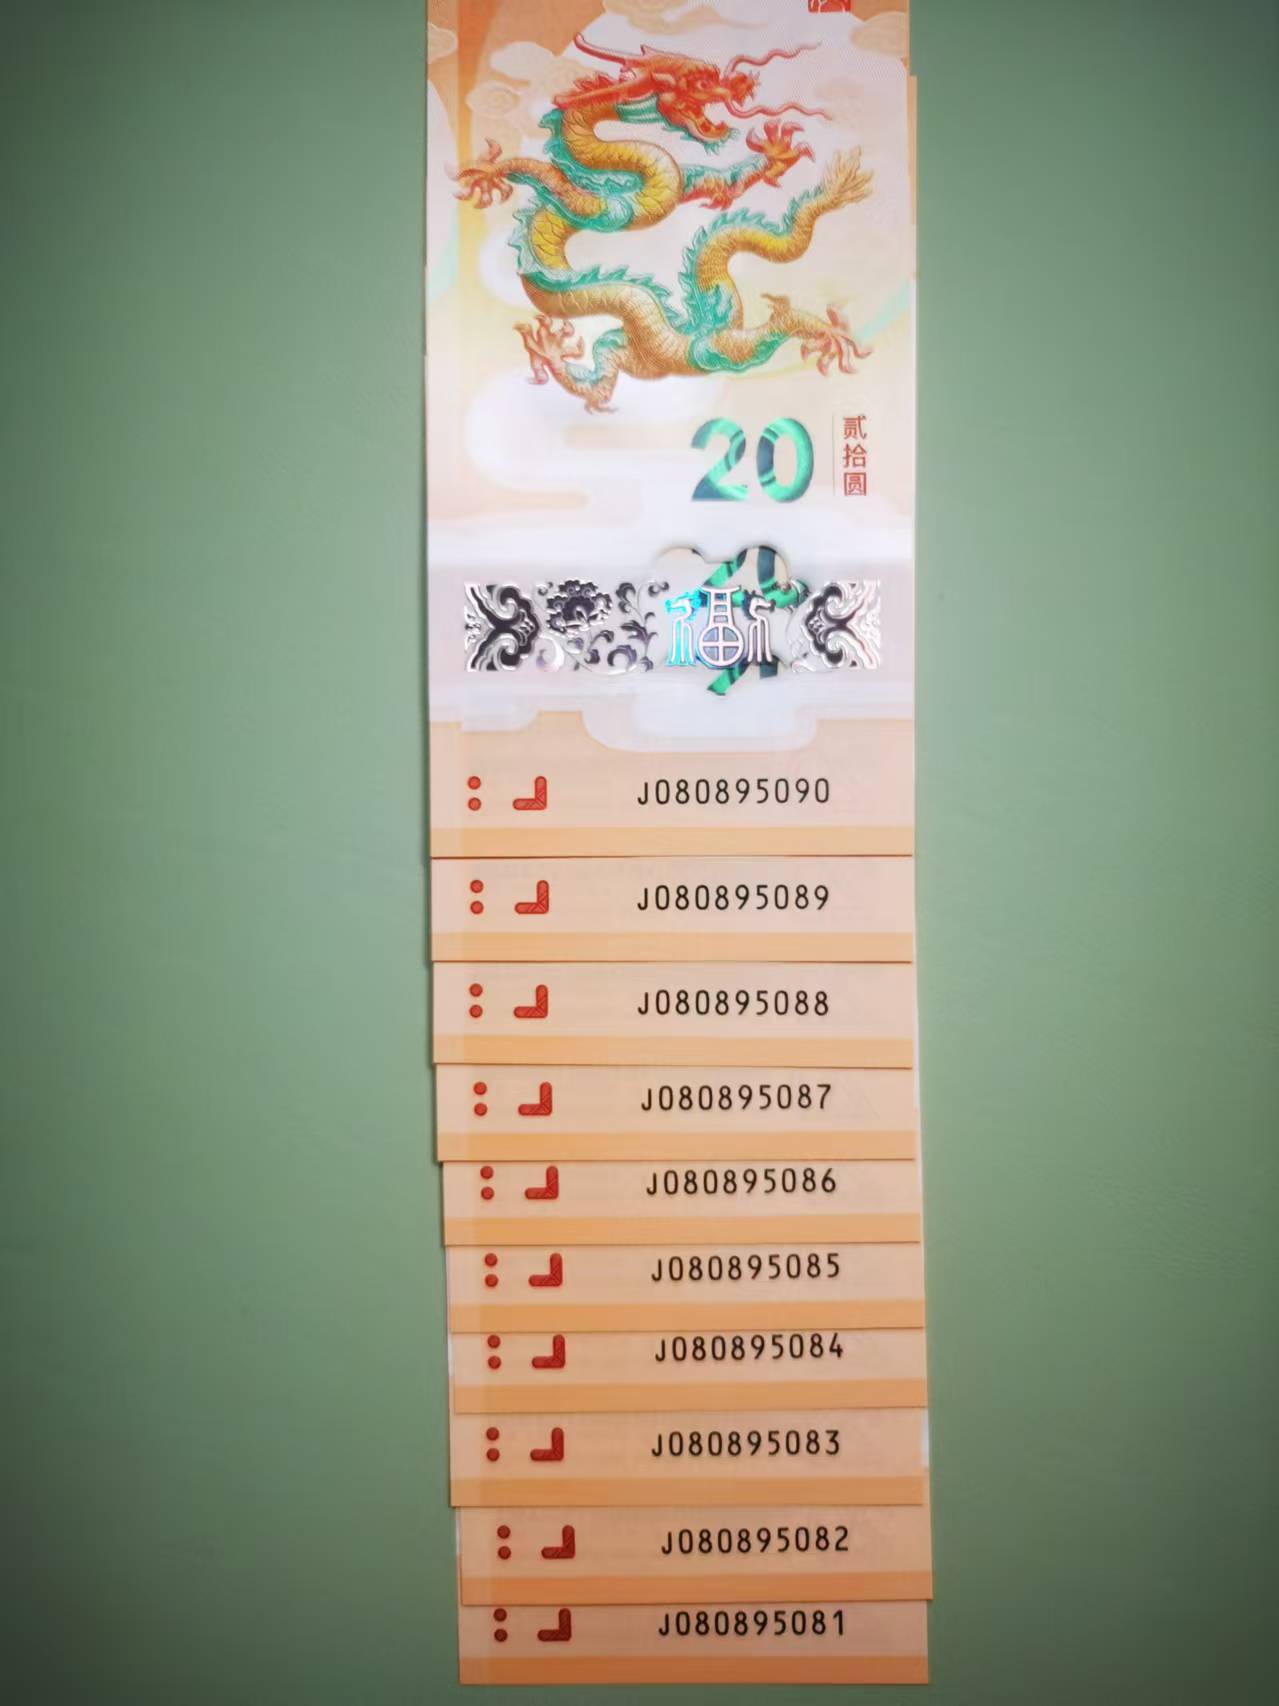 20
贰拾圆
福
J080895090
J080895089
J080895088
J080895087
J080895086
J080895085
J080895084
J080895083
J080895082
J080895081